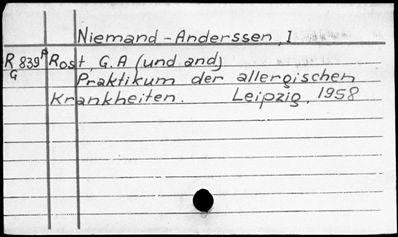 Niemand-Anderssen, I
R 839 A Rost, G.A (und and)
G Praktikum der allergischen
Krankheiten. Leipzig, 1958